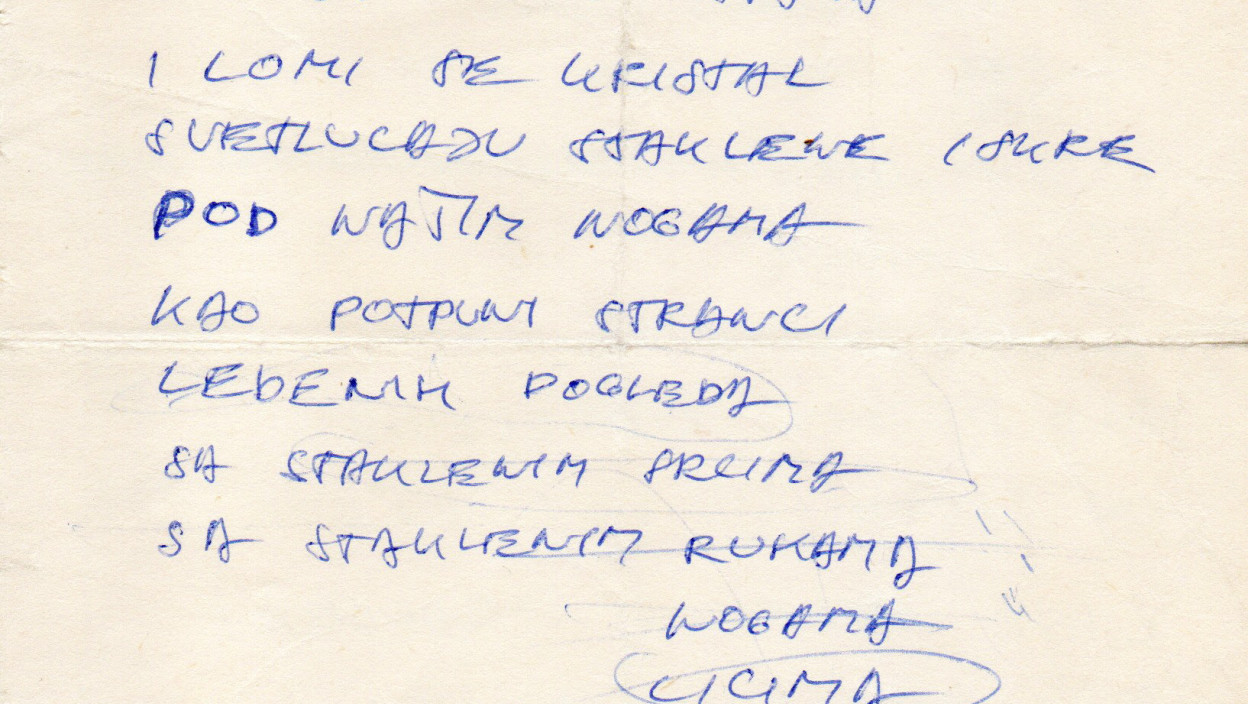 I LOMI SE KRISTAL
SVETLUCAJU STAKLENE ISKRE
POD NAŠIM NOGAMA
KAO POTPUNI STRANCI
LEDENIH POGLEDA
SA STAKLENIM SRCIMA
SA STAKLENIM RUKAMA
NOGAMA